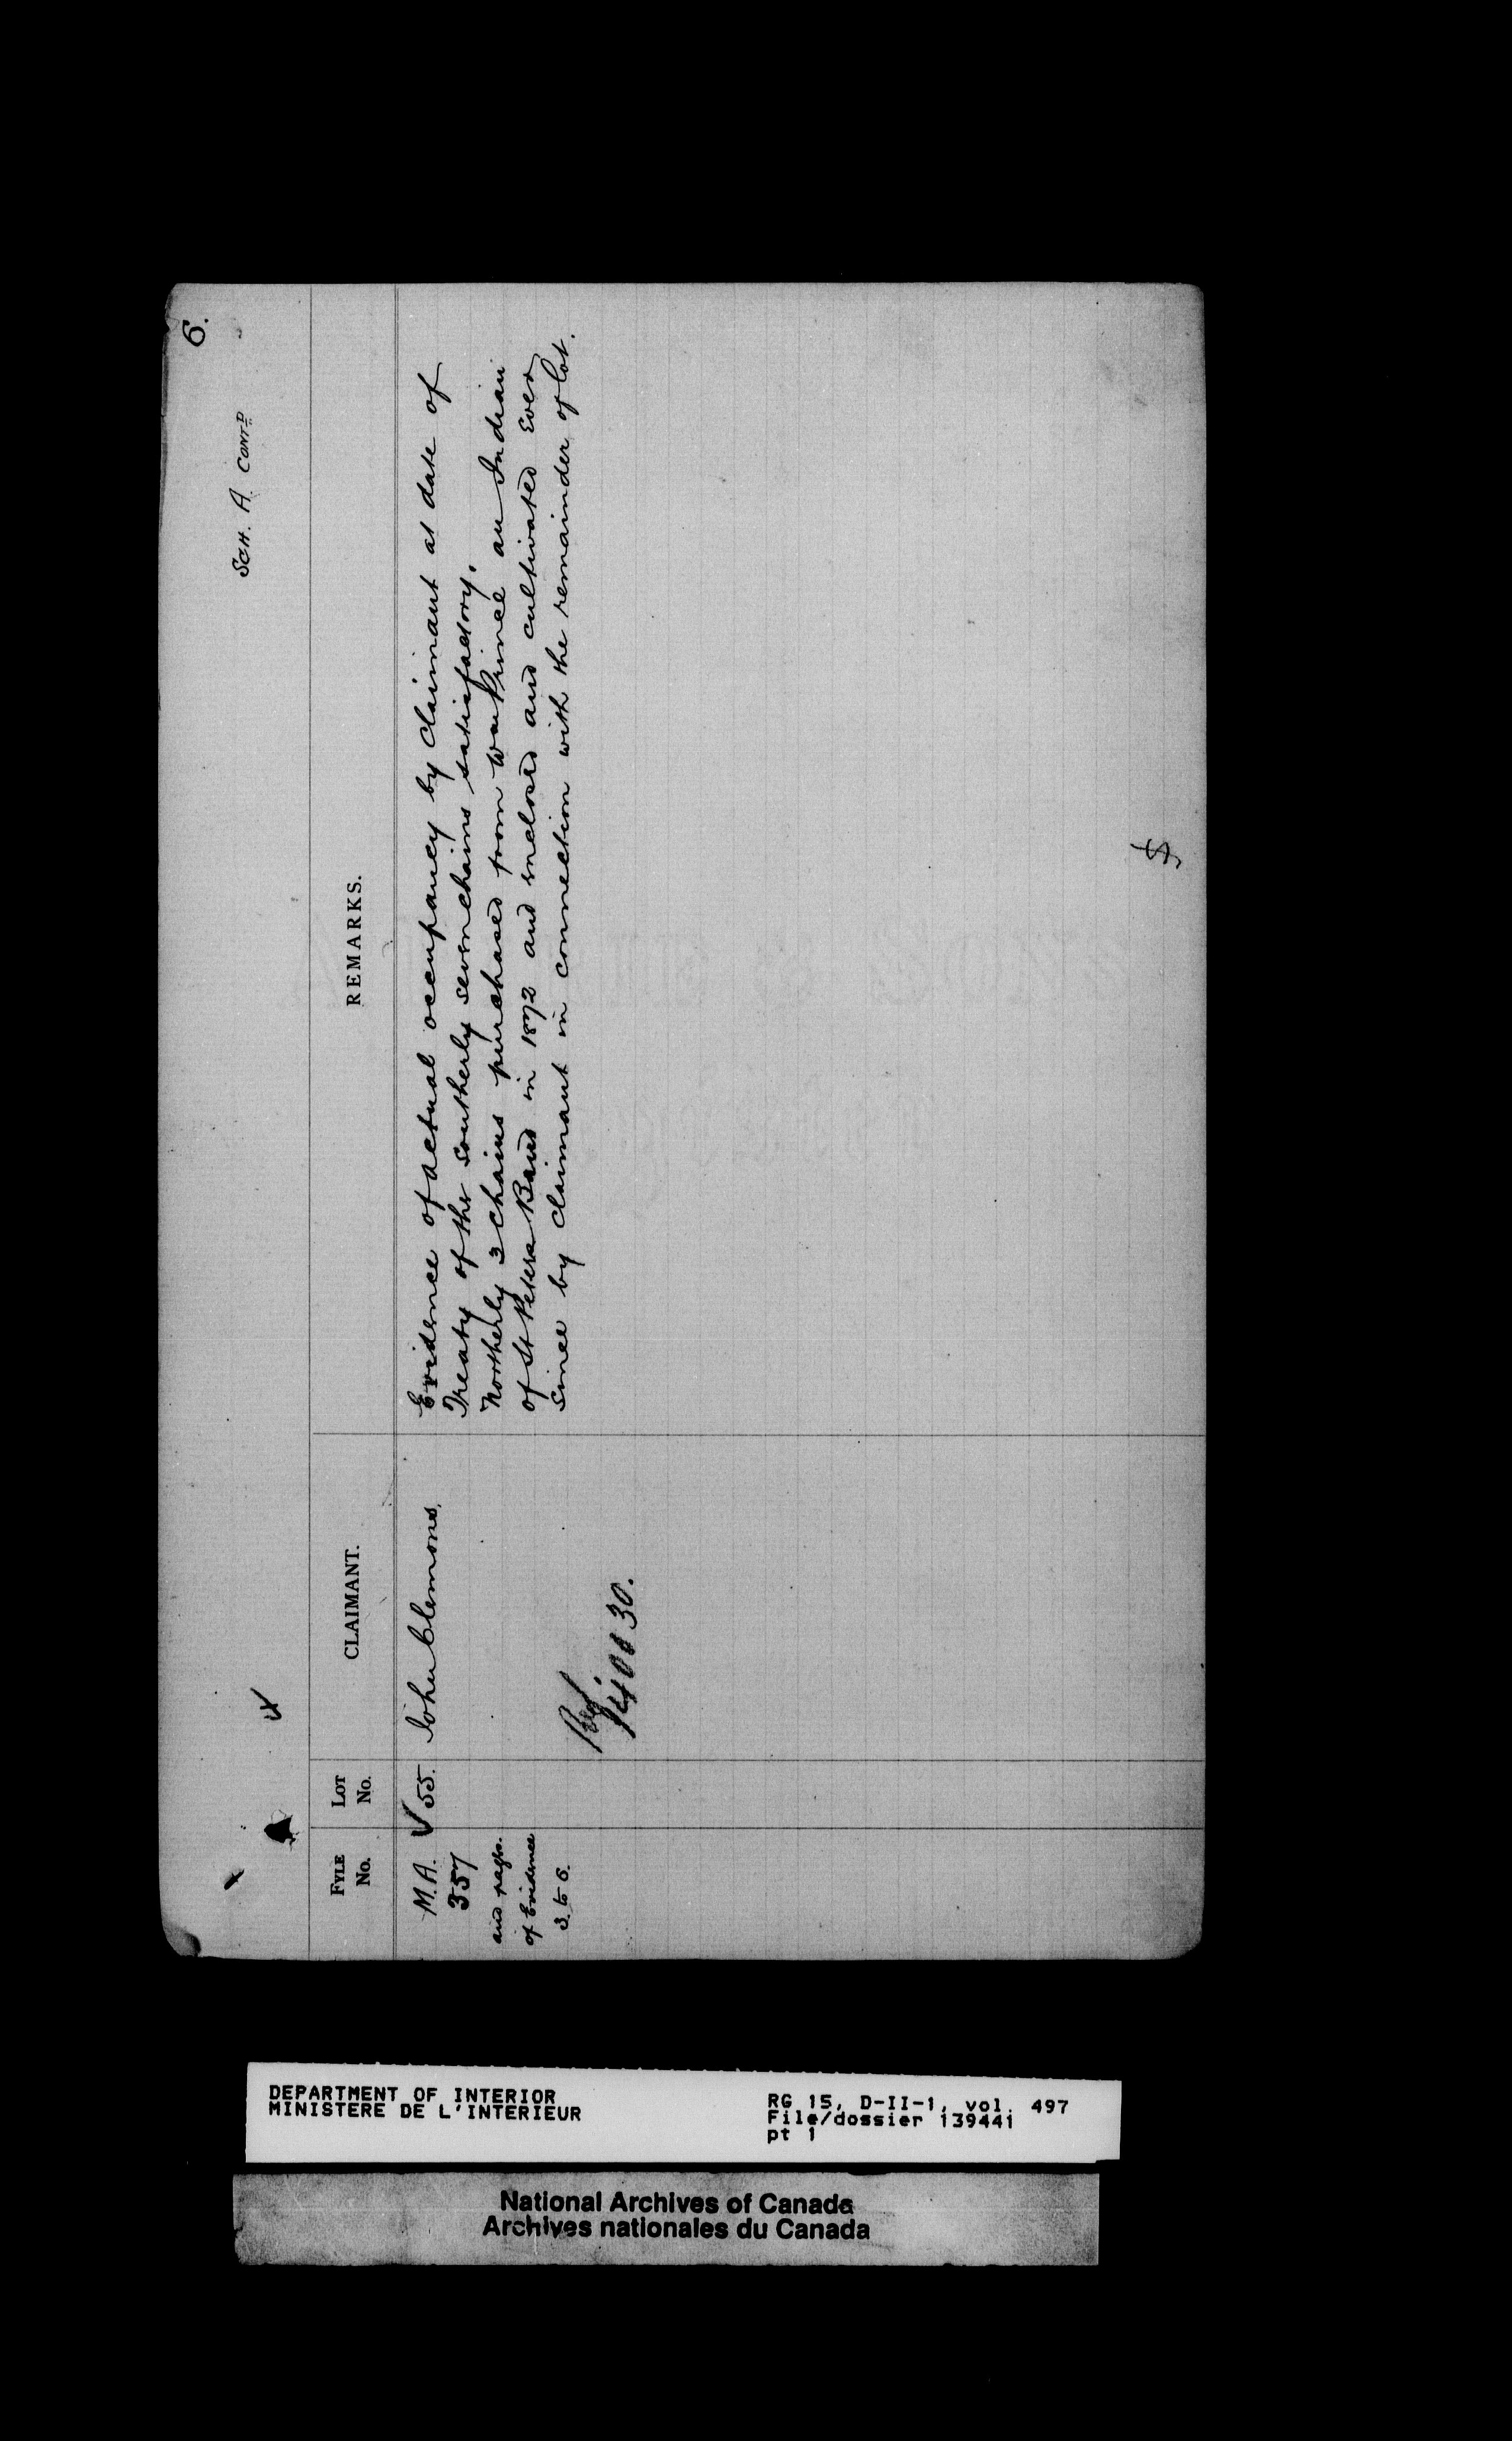 6.
SCH. A. CONT'D
FYLE No.
LOT No.
CLAIMANT.
REMARKS.
M.A. 55. John Clemons.
357
and pages.
of Evidence
3 to 6.
Evidence of actual occupancy by Claimant at date of
Treaty of the southerly seven chains satisfactory.
Northerly 3 chains purchased from Wm Prince an Indian
of St Peters Band in 1872 and inclosed and cultivated ever
since by Claimant in connection with the remainder of lot.
DEPARTMENT OF INTERIOR
MINISTERE DE L'INTERIEUR
RG 15, D-II-1, vol. 497
File/dossier 139441
pt 1
National Archives of Canada
Archives nationales du Canada